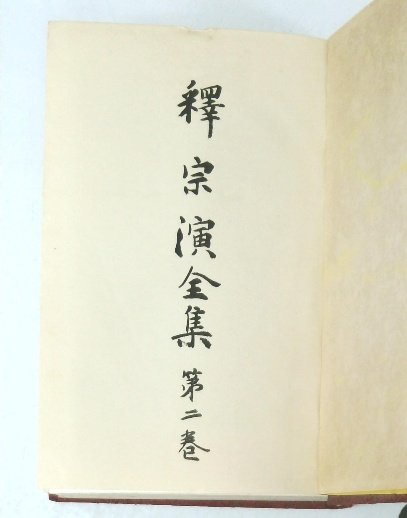 釋宗演全集第二卷